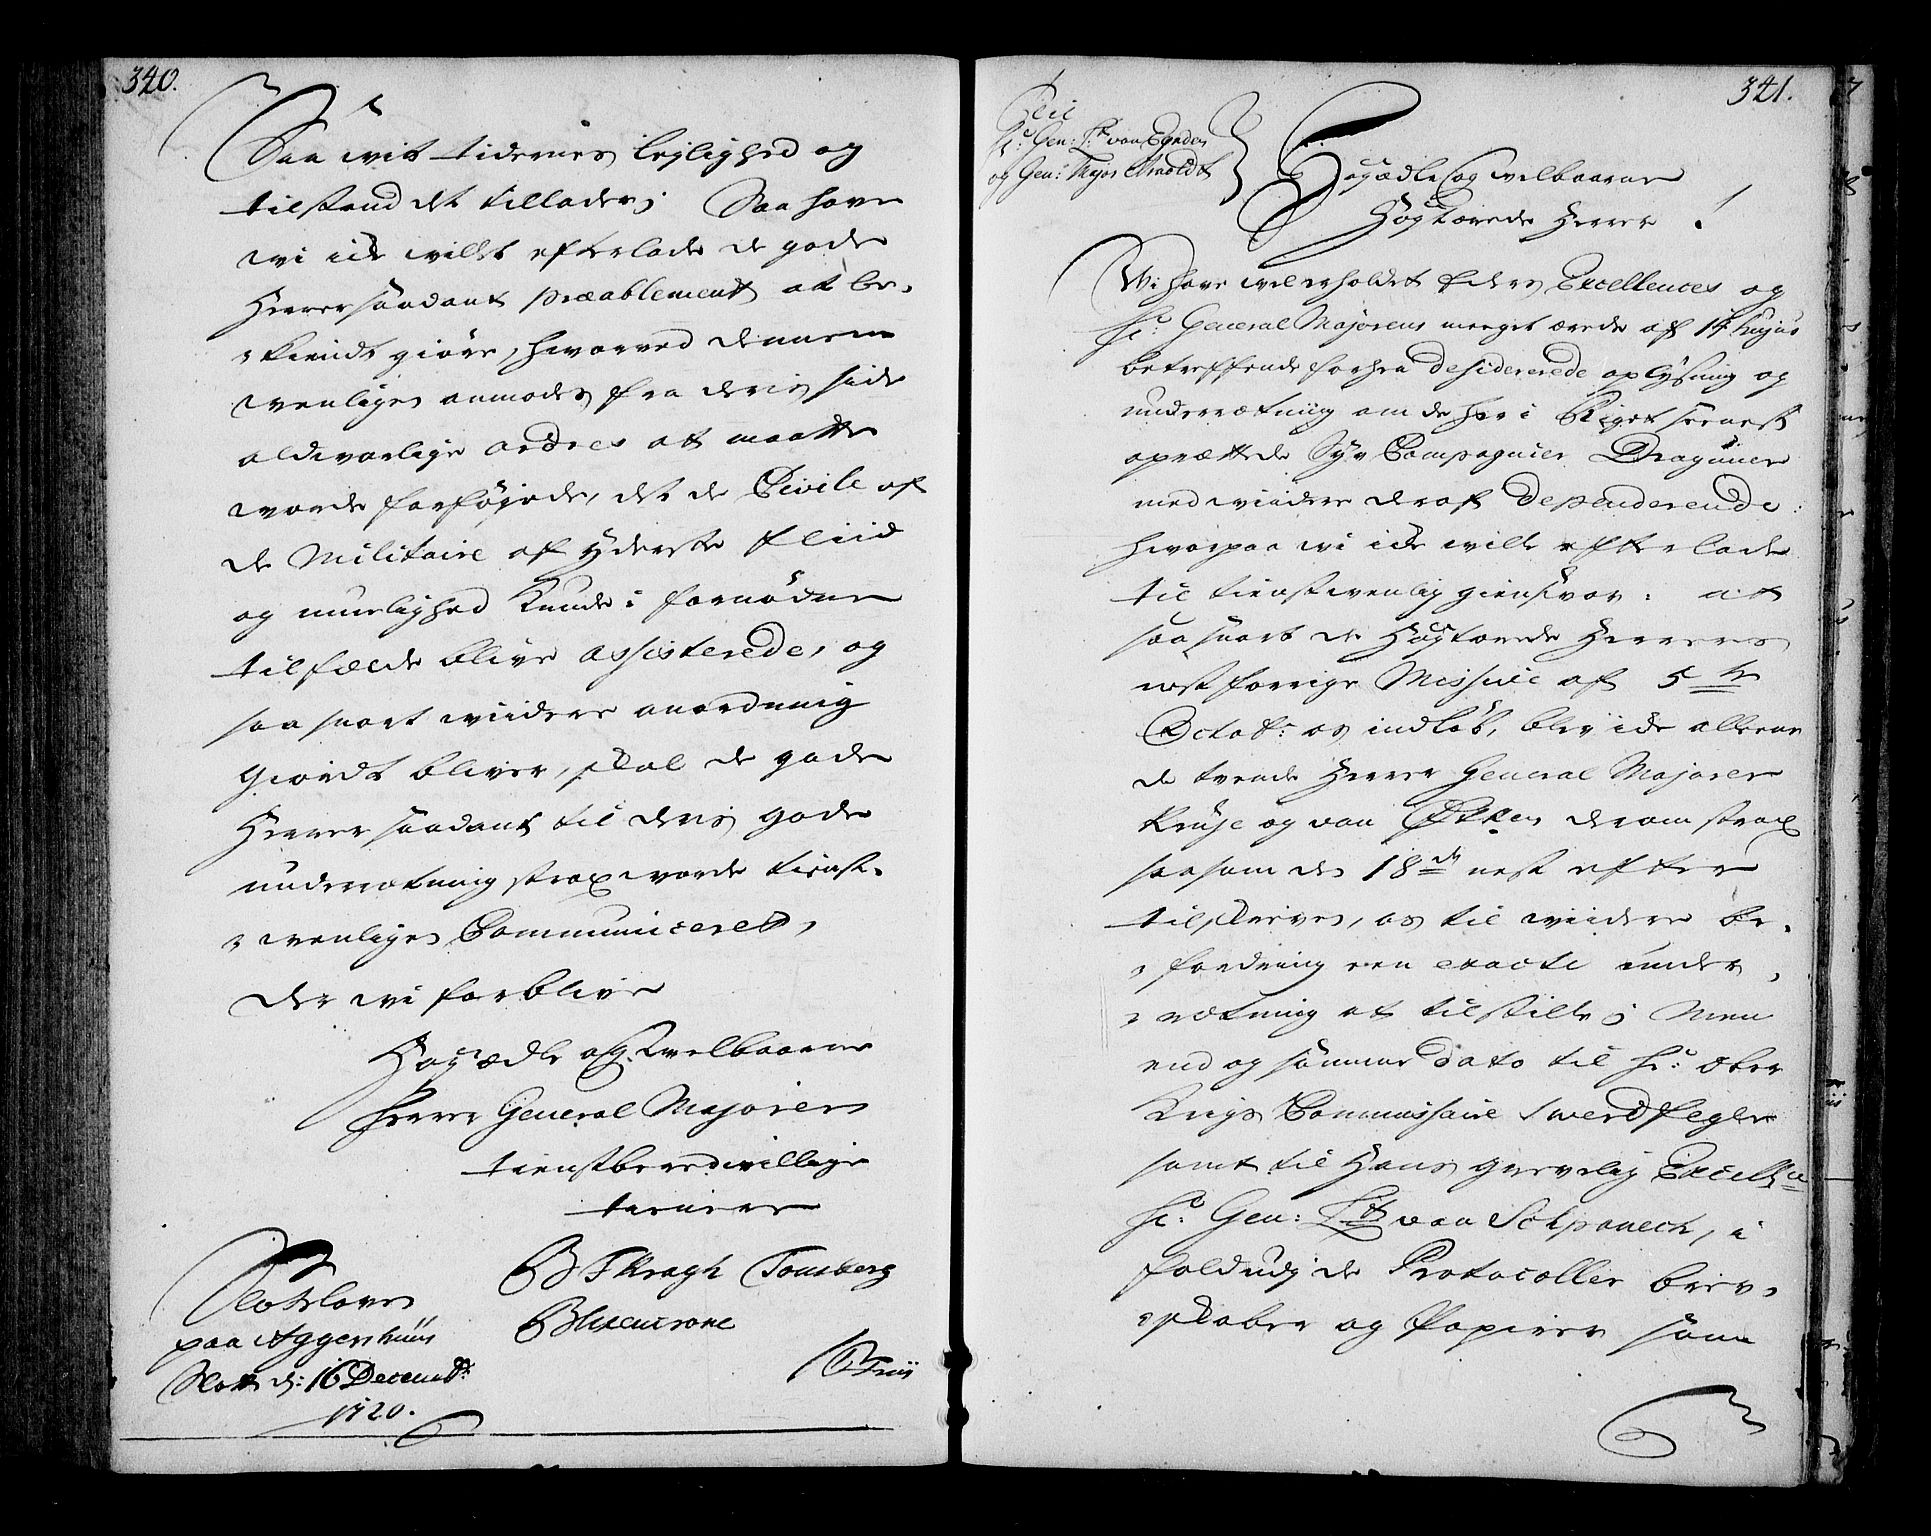 340.
Saa vit tidernes lejlighed og
tilstand det tillader; Saa have
wi icke willet efterlade de gode
Herrer saadant præablement at be-
kiendt giøre, hvorved dennem
wenligen anmodes fra deris side
aldvorlige ordres at maatte
worde forføjede, det de Civile af
de Militaire af yderste fliid
og muelighed kunde i fornødne
tilfælde blive assisterede, og
saa snart wiidere anordning
giordt bliver, skal de gode
Herrer saadant til deris gode
underrætning strax worde tienst-
wenligen Communiceret,
der wi forblive
Høg ædle og welbaarne
Herrer General Majorer
tienstberedvillige
tienere
B F Kragh Tonsberg
Slotsloven
paa Aggershuus
Slott d: 16 Decemb:
1720.
341.
Til
Hr: Gen: Lt: von
og Gen: Major Arnoldt
Høgædle og welbaarne
Høgtærede Herrer !
Wi have wel erholdet Eders Excellences og
Hr: General Majorens meeget ærede af 14 hujus
betreffende forhen desidererede oplysning og
underrætning om de her i Riget seenest
oprættede Syv Compagnier Draguner
med wiidere deraf dependerende:
hvorpaa wi icke wille efterlade
til tienstwenlig giensvar: at
saa snart de Høgtærede Herrers
nest forrige Missive af 5te
Octob: os indløb, blev icke alleene
de tvende Herrer General Majorer
Kruse og von Øtken derom strax
saasom de 18de nest efter
tilskreven, os til wiidere be-
fordring een exacte under-
rætning at tilstille; Men
end og samme dato til Hr: Ober
Krigs Commissaire Swerdfeger
samt til Hans grevelig Excell:ce
Hr: Gen: Lt von Schponeck, i
fald udj de Protocoller brev-
skaber og Papirer som